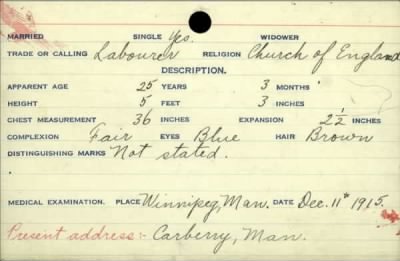 MARRIED SINGLE Yes. WIDOWER
TRADE OR CALLING Labourer RELIGION Church of England
DESCRIPTION.
APPARENT AGE 25 YEARS 3 MONTHS
HEIGHT 5 FEET 3 INCHES
CHEST MEASUREMENT 36 INCHES EXPANSION 2½ INCHES
COMPLEXION Fair EYES Blue HAIR Brown
DISTINGUISHING MARKS Not stated.
MEDICAL EXAMINATION. PLACE Winnipeg, Man. DATE Dec. 11" 1915.
Present address:- Carberry, Man.